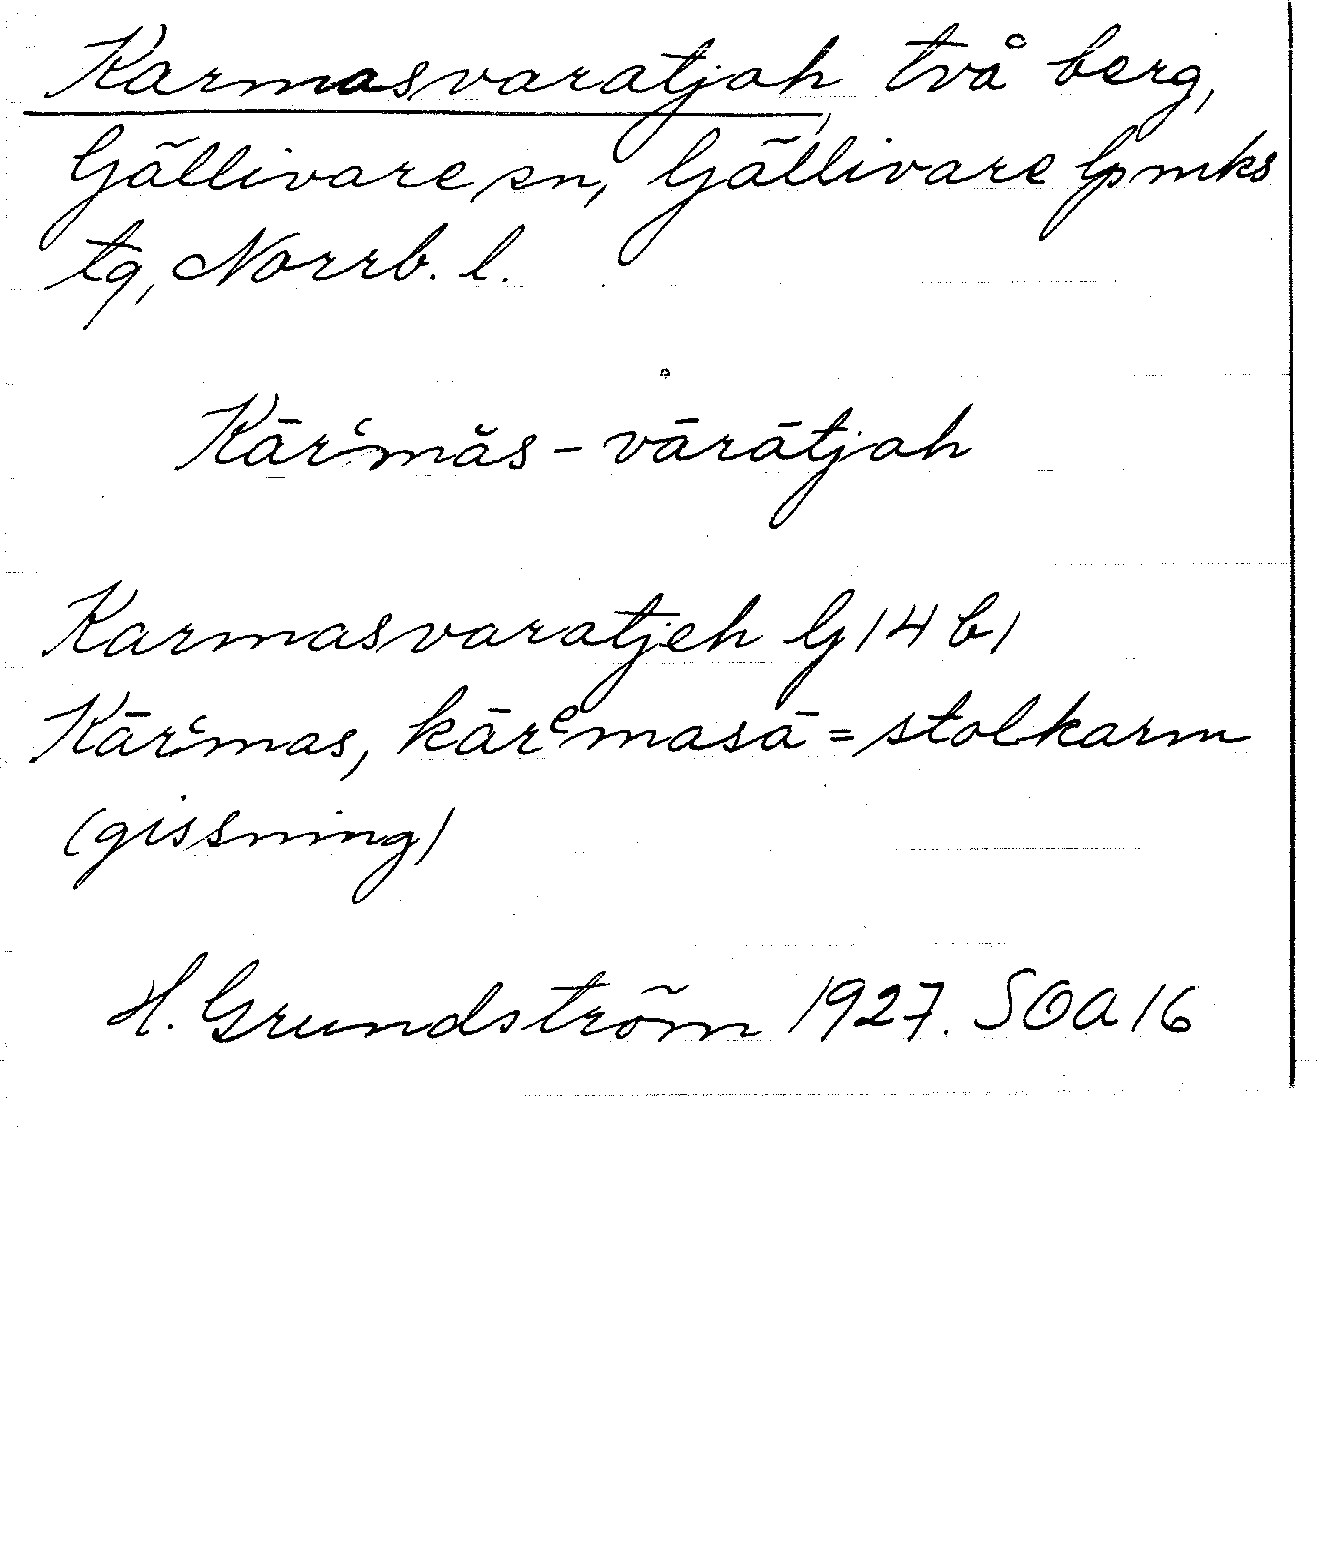 Karmasvaratjah två berg,
Gällivare sn, Gällivare lpmks
tg, Norrb. l.
Kār‘măs - vārātjah
Karmasvaratjeh G 14 b1
Kār‘mas, kārᵉmasā = stolkarm
(gissning)
H. Grundström 1927. SOA 16